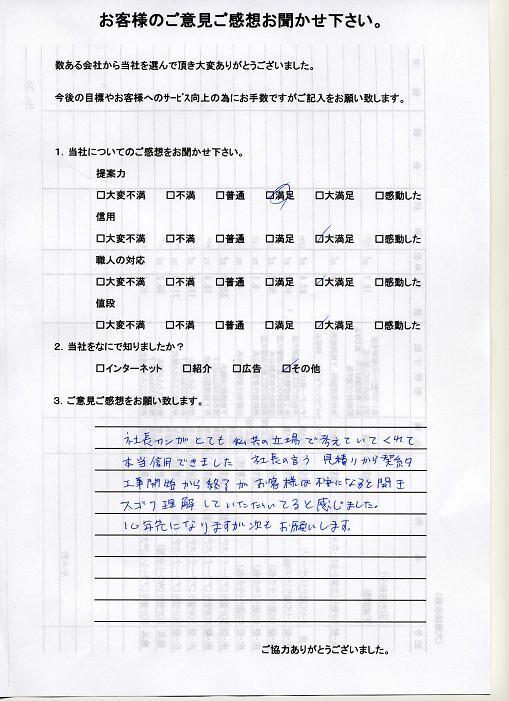 お客様のご意見ご感想お聞かせ下さい。
数ある会社から当社を選んで頂き大変ありがとうございました。
今後の目標やお客様へのサービス向上の為にお手数ですがご記入をお願い致します。
1．当社についてのご感想をお聞かせ下さい。
提案力
□大変不満 □不満 □普通 ☑満足 □大満足 □感動した
信用
□大変不満 □不満 □普通 □満足 ☑大満足 □感動した
職人の対応
□大変不満 □不満 □普通 □満足 ☑大満足 □感動した
値段
□大変不満 □不満 □普通 □満足 ☑大満足 □感動した
2．当社をなにで知りましたか？
□インターネット □紹介 □広告 ☑その他
3．ご意見ご感想をお願い致します。
社長サンがとても私共の立場で考えていてくれて
本当信用できました 社長の言う 見積りから契約
工事開始から終了が お客様は不安になると聞き
スゴク理解していただいてると感じました。
10年先になりますが次もお願いします。
ご協力ありがとうございました。